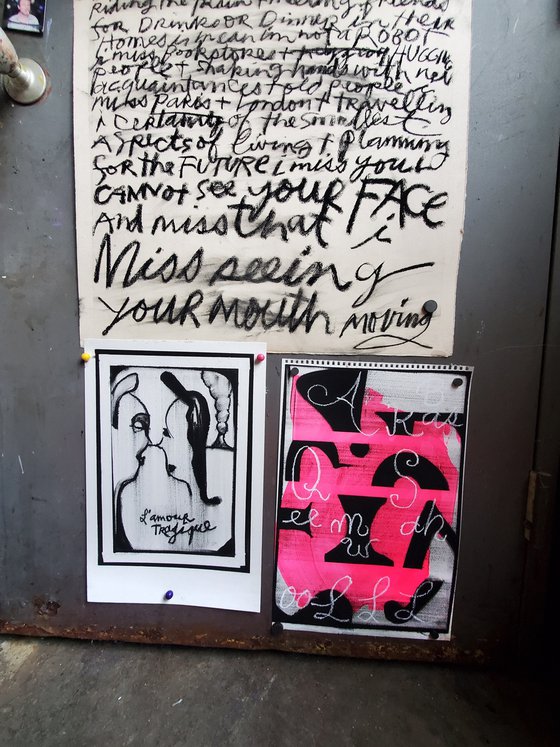 riding the train + meeting friends
for Drinks or Dinner in their
Homes i'm cAn im not A ROBOT
i miss bookstores + HUGGING
people + Shaking hands with new
acquaintances + old people i
miss PARis + London + travelling
A certainty of the smallest
ASpects of living + Planning
for the FUTURE i miss you i
CANNOT see your FACE
And miss that i
Miss seeing
YOUR MOUth moving
L'amour
TRAGique
A Ras
Q S
ee m ah
w
oo L L L